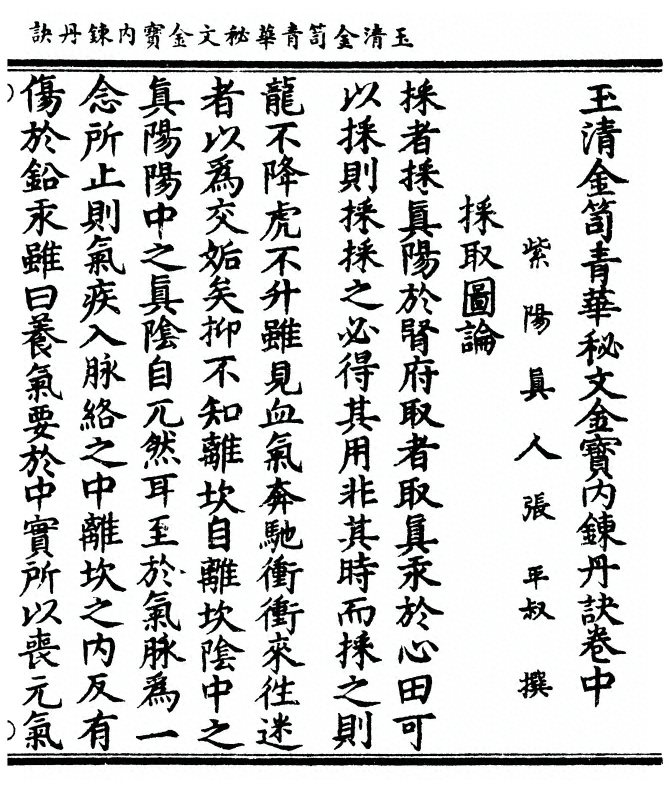 玉清金笥青華秘文金寶內鍊丹訣
玉清金笥青華秘文金寶内鍊丹訣卷中
紫陽眞人張平叔撰
採取圖論
採者採眞陽於腎府取者取眞汞於心田可
以採則採採之必得其用非其時而採之則
龍不降虎不升雖見血氣奔馳衝衝來徃迷
者以爲交姤矣抑不知離坎自離坎陰中之
眞陽陽中之眞陰自兀然耳至於氣脉爲一
念所止則氣疾入脉絡之中離坎之内反有
傷於鉛汞雖曰養氣要於中實所以喪元氣